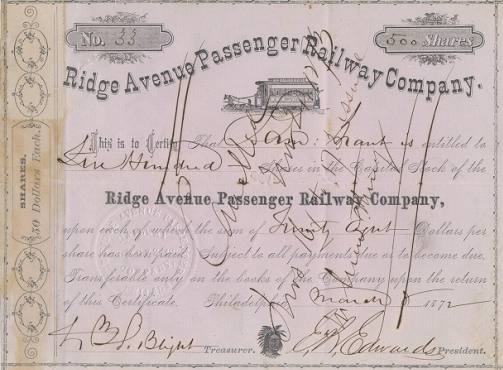 No. 33
500 Shares
Ridge Avenue Passenger Railway Company.
This is to Certify That Sam: Grant is entitled to
Five Hundred Shares in the Capital Stock of the
Ridge Avenue Passenger Railway Company,
upon each of which the sum of Twenty Eight Dollars per
share has been paid. Subject to all payments due or to become due.
Transferable only on the books of the Company upon the return
of this Certificate. Philadelp March 8 1872
Treasurer.
E. Edwards President.
SHARES.
50 Dollars Each.